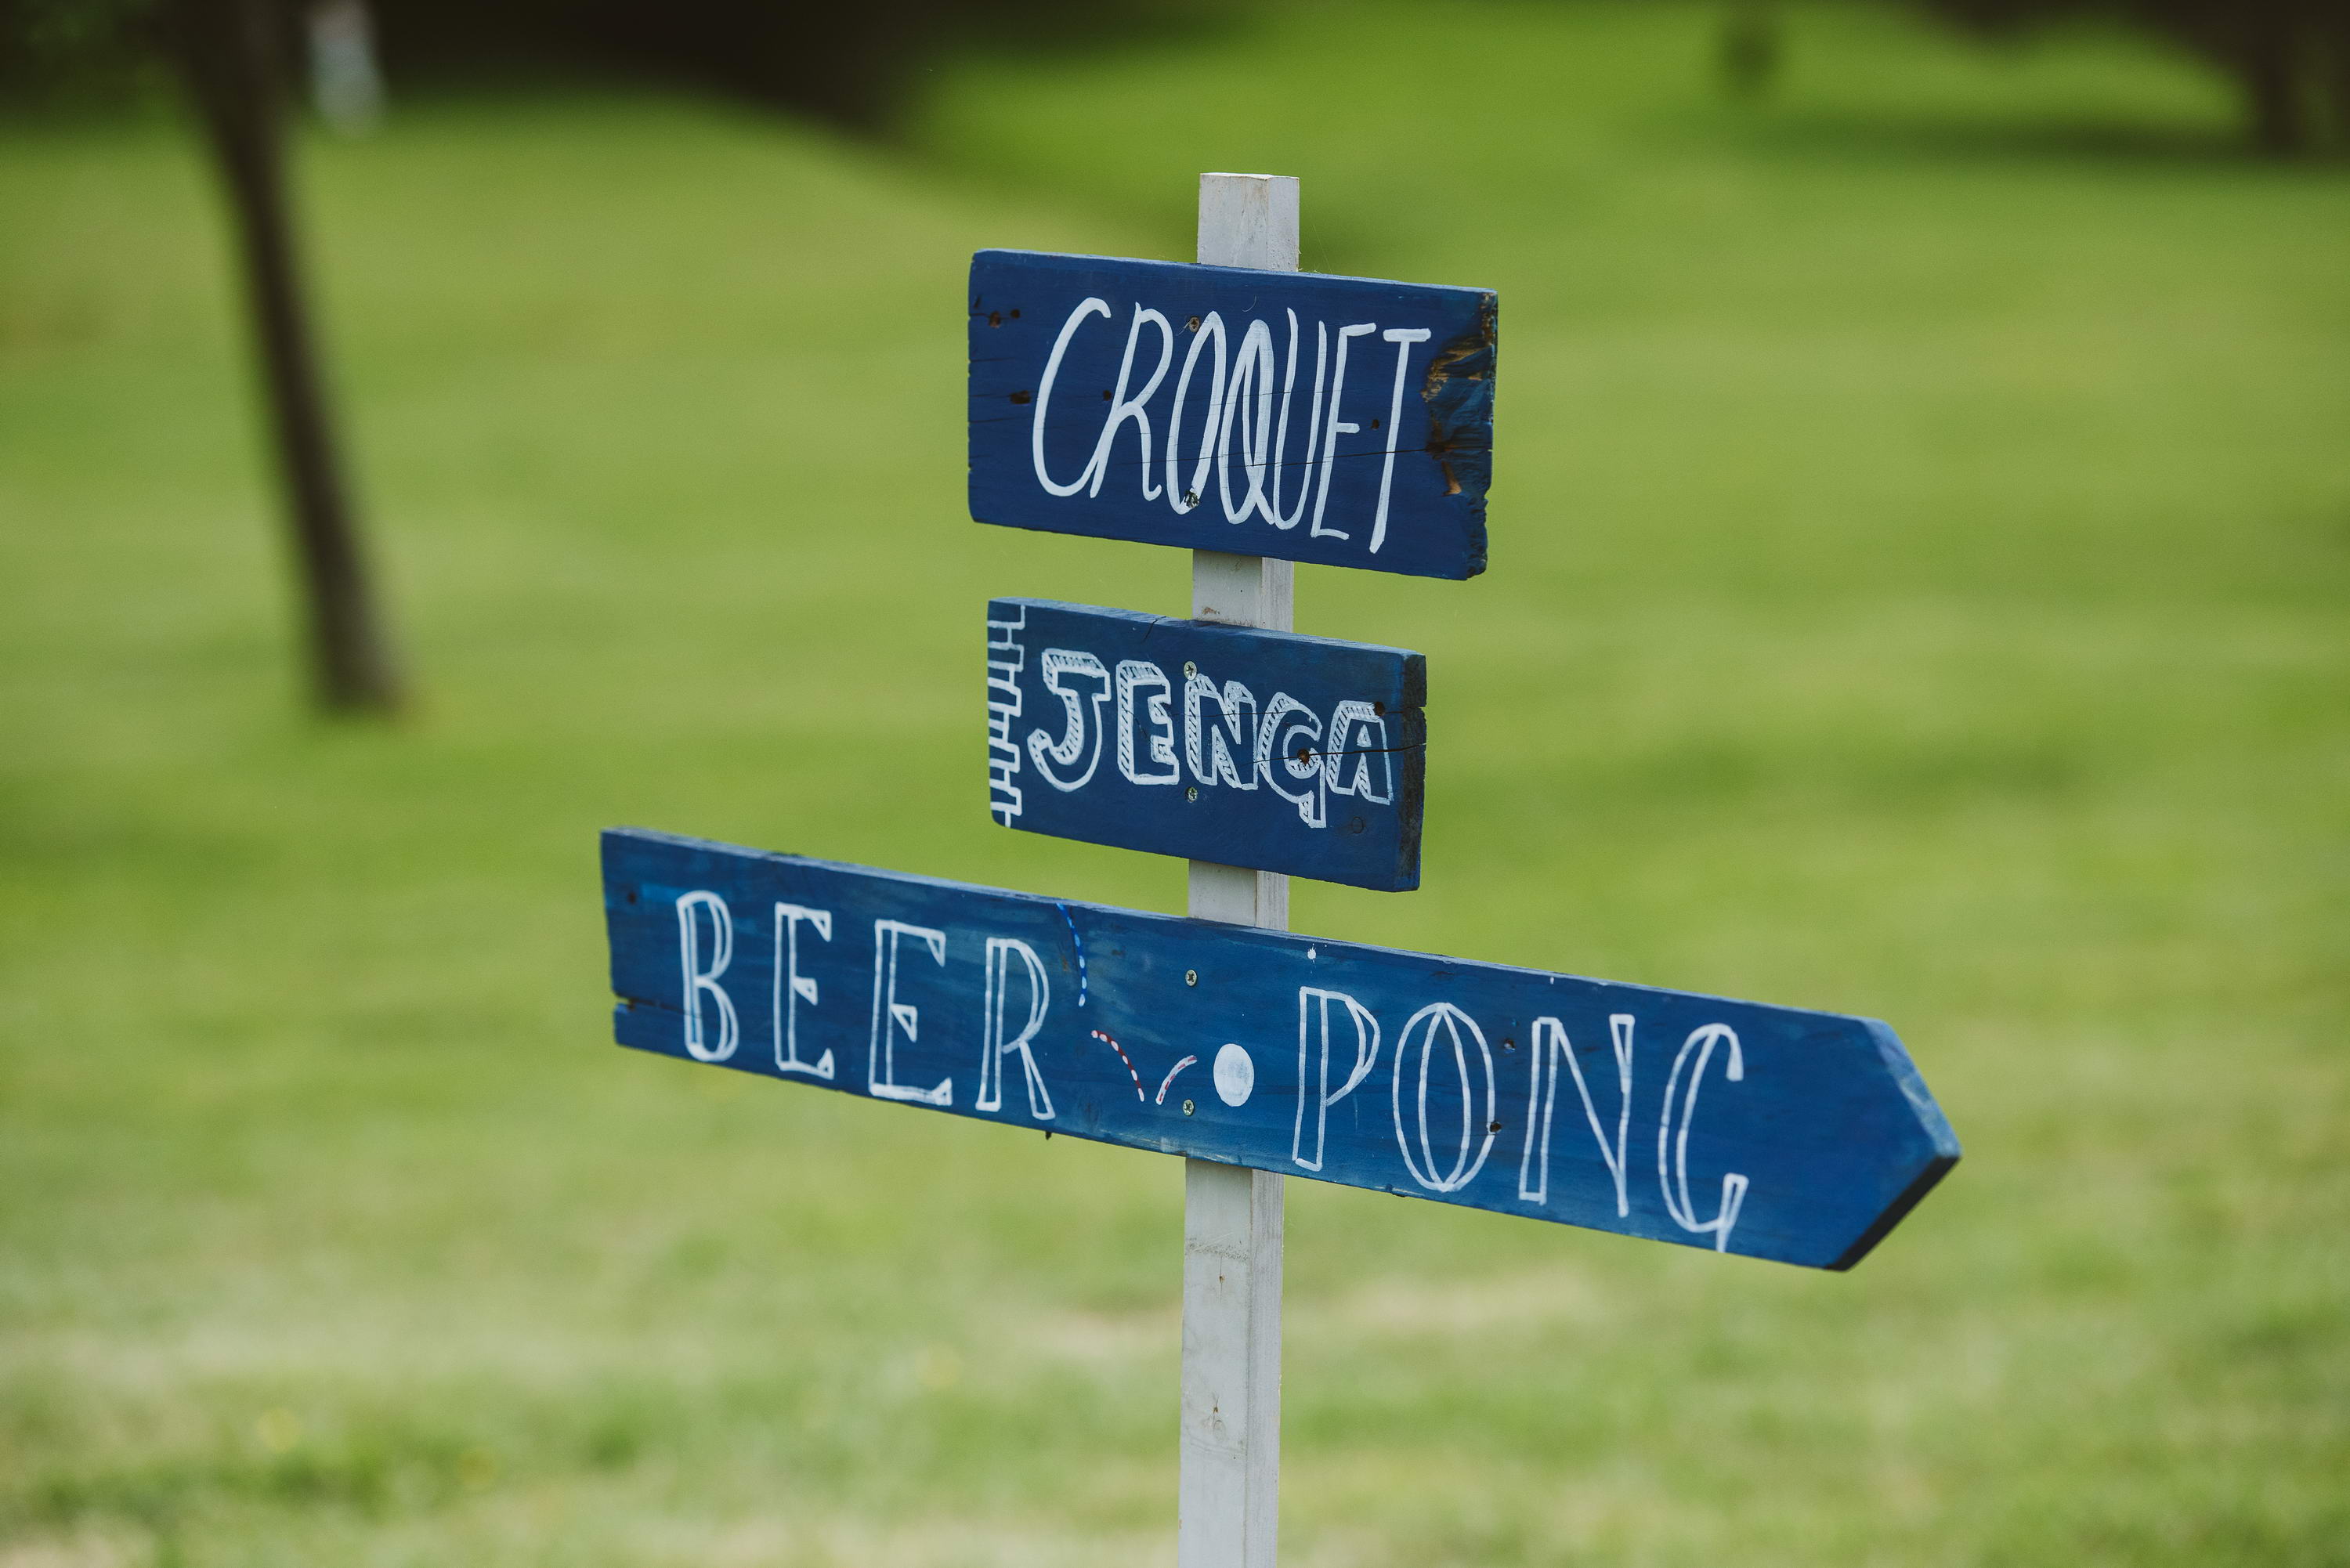 CROQUET
JENGA
BEER PONG